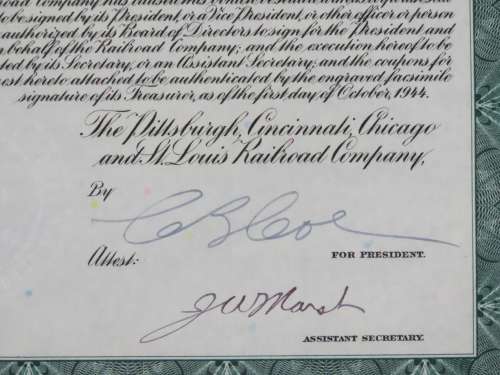 road Company has caused
to be signed by its President, or a Vice President, or other officer or person
authorized by its Board of Directors to sign for the President and
on behalf of the Railroad Company; and the execution hereof to be
ted by its Secretary, or an Assistant Secretary; and the coupons for
est hereto attached to be authenticated by the engraved facsimile
signature of its Treasurer, as of the first day of October, 1944.
The Pittsburgh, Cincinnati, Chicago
and St. Louis Railroad Company,
By
Attest:
FOR PRESIDENT.
J W Marsh
ASSISTANT SECRETARY.